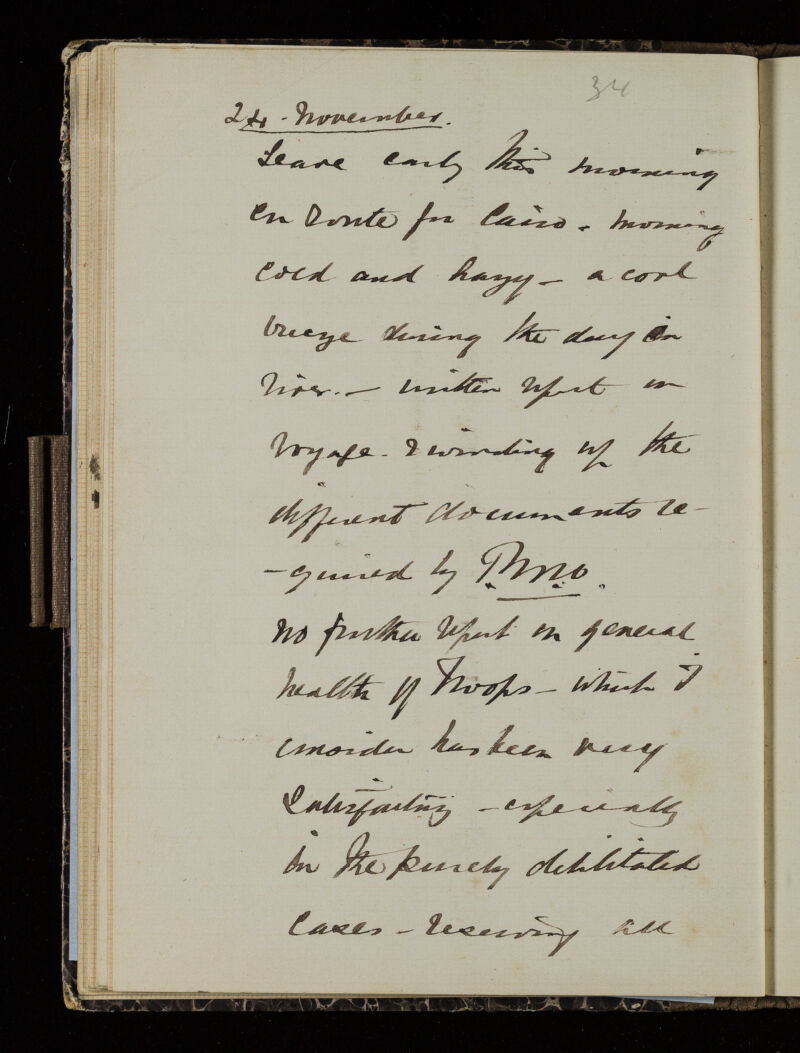 34
24 - November.
Leave early this morning
en route for Cairo - morning
cold and hazy - a cool
breeze during the day on
river. - written report on
voyage - & winding up the
different documents re-
-quired by P.M.O.
no further report on general
health of Troops - which I
consider has been very
satisfactory - especially
in the purely debilitated
cases - reserving all